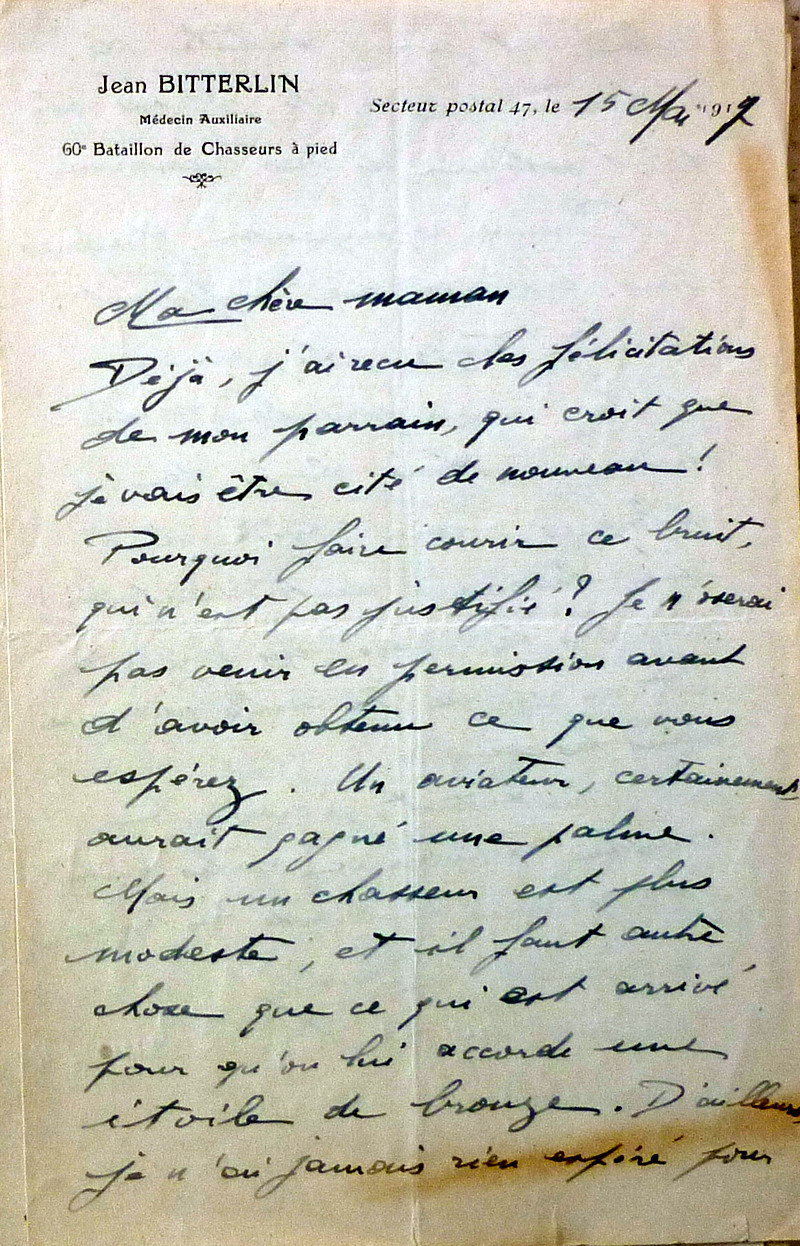 Jean BITTERLIN
Médecin Auxiliaire
60e Bataillon de Chasseurs à pied
Secteur postal 47, le 15 Mai 1917
Ma chère maman
Déjà, j'ai recu des félicitations
de mon parrain, qui croit que
je vais être cité de nouveau !
Pourquoi faire courir ce bruit,
qui n'est pas justifié ? Je n'oserai
pas venir en permission avant
d'avoir obtenu ce que vous
espérez. Un aviateur, certainement,
aurait gagné une palme.
Mais un chasseur est plus
modeste, et il faut autre
chose que ce qui est arrivé
pour qu'on lui accorde une
étoile de bronze. D'ailleurs
je n'ai jamais rien espéré pour